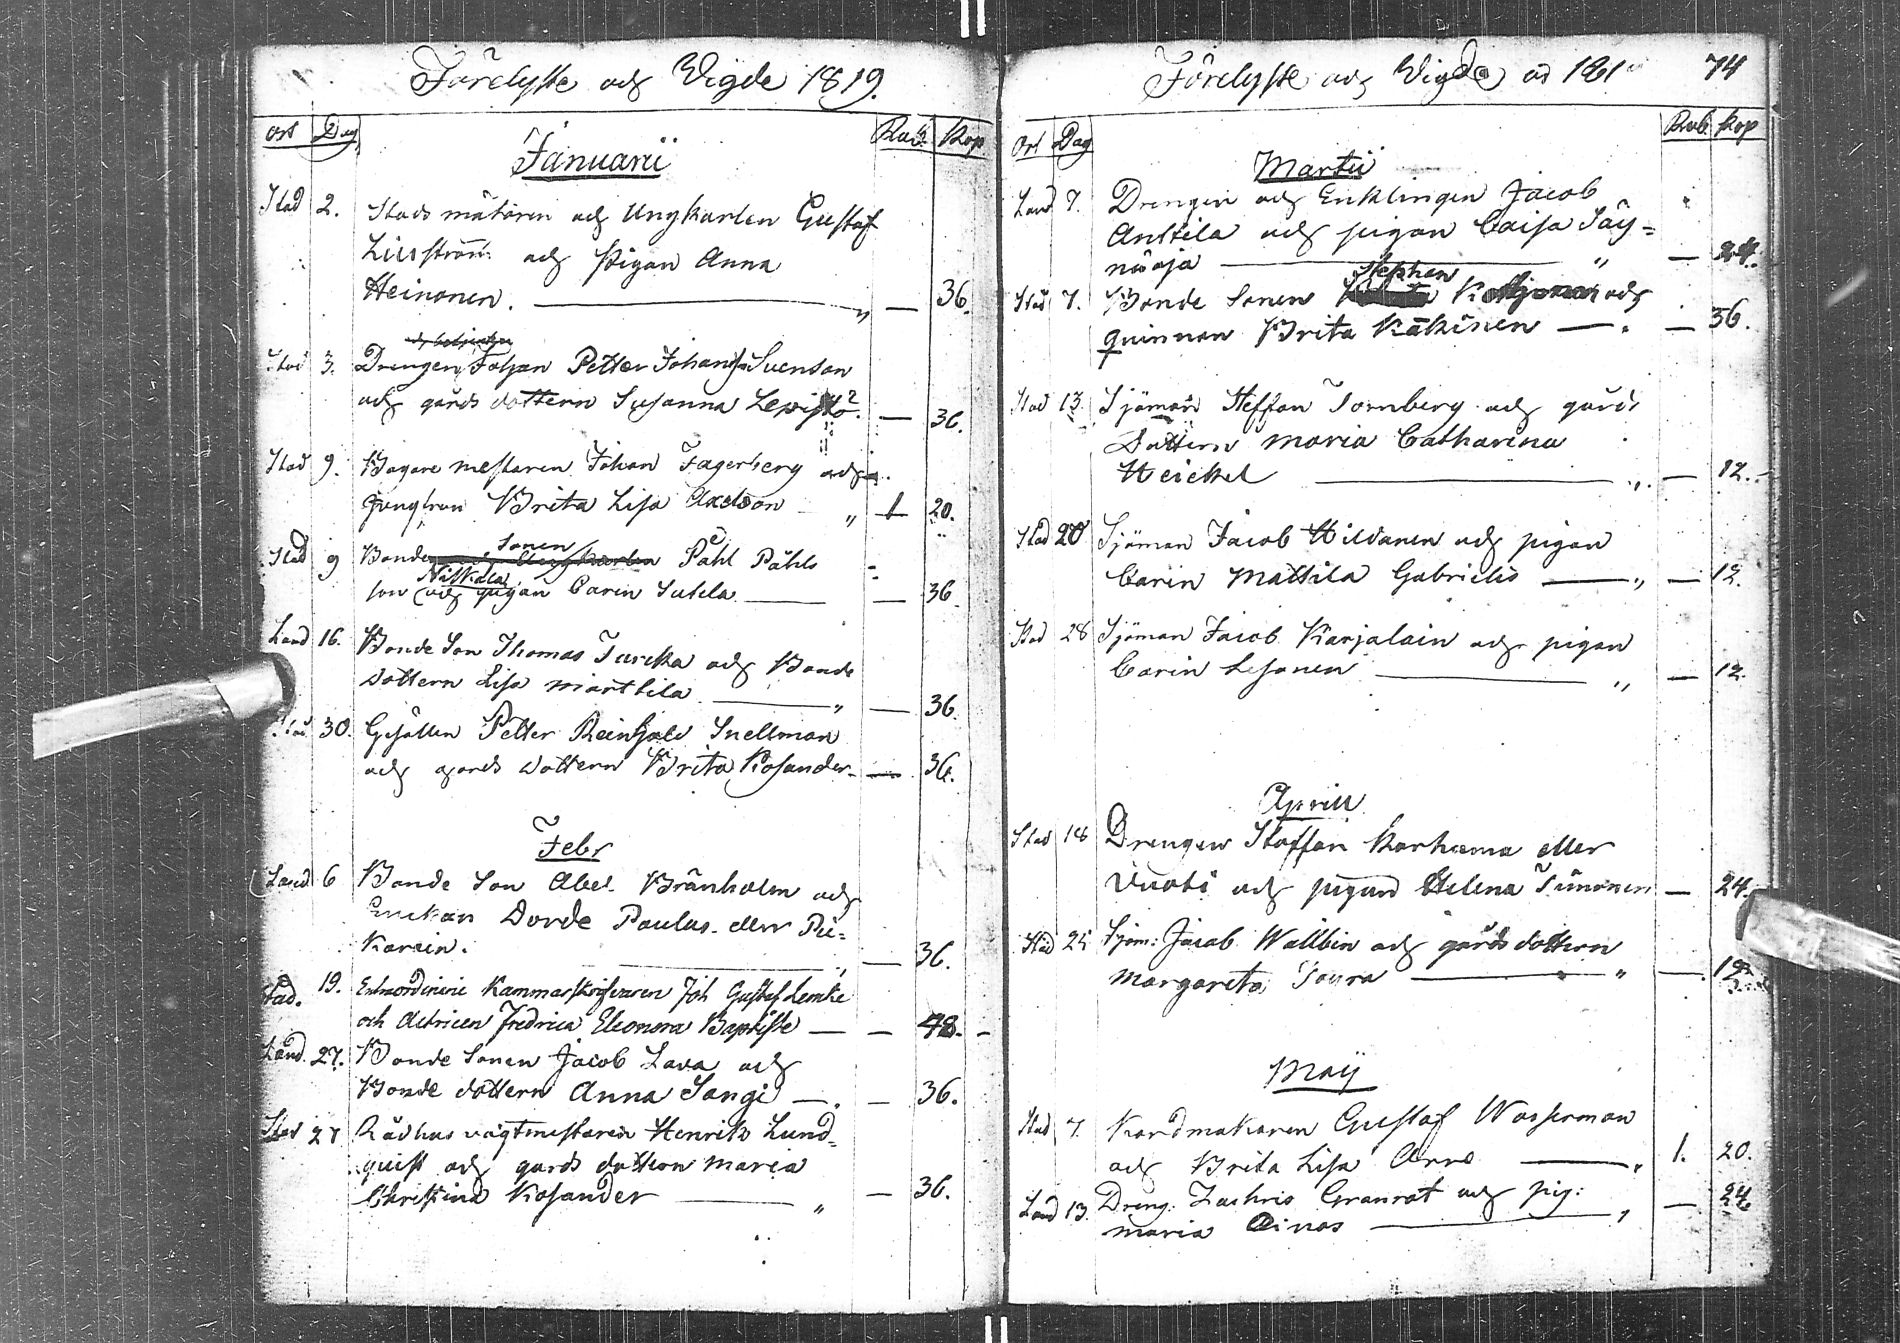 Förelyste och Vigde 1819.
Ort Dag Rub. Kop
Januarii
Stad 2. Stads mätaren och Ungkarlen Gustaf
och Pigan Anna
Heinonen. — 36.
Stad 3. Drengen Johan Petter Johans Svenson
och gårds dottern Susanna Lepistö. — 36.
Stad 9. Bagare mestaren Johan Fagerberg och
Jungfrun Brita Lisa Axelson " 1 20.
Stad 9 Bonde sonen Påhl Påhls
son Nikkala och pigan Carin Sukela — 36
Land 16. Bonde Son Thomas Turcka och Bonde
dottern Lisa Marttila " — 36.
Stad 30. Gesällen Petter Reinhold Snellman
och gårds dottern Brita Kosander — 36.
Febr
Land 6 Bonde Son Abel Bränholm och
Enckan Dorde Paulus eller Pii=
Karain. — 36.
Stad. 19. Extraordinirie Kammarskrifvaren Joh Gustaf Lemke
och Actricen Fredrica Eleonora Baptiste — 48.
Land. 27. Bonde Sonen Jacob Lava och
Bonde dottern Anna Sangi — 36.
Stad 27 Rådhus vagtmestaren Henrik Lund=
quist och gårds dottern Maria
Christina Kosander " — 36.
Förelyste och Vigde 74
Ort Dag Rub Kop
Martii
Land 7. Drengen och Enklingen Jacob
Anttila och pigan Caisa Säy=
näoja " — 24.
Stad 7. Bonde Sonen Stephan och
quinnan Brita Käkinen — 36.
Stad 13. Sjöman Steffan Tornberg och gårds
Dottern Maria Catharina
Heickel " — 12.
Stad 20 Sjöman Jacob Hildanen och pigan
Carin Mattila Gabriels " — 12.
Stad 28 Sjöman Jacob Karjalain och pigan
Carin Lesonen " — 12.
Aprill
Stad 18 Drengen Staffan Karhuma eller
Vuoti och pigan Helena — 24.
Stad 25 Sjöm: Jacob Wallbin och gårds dottern
Margareta Toura " — 12
Maij
Stad 7. Kardmakaren Gustaf Wasserman
och Brita Lisa " 1. 20.
Land 13. Dreng. Zachris Granrot och pig:
Maria Oinas — 24